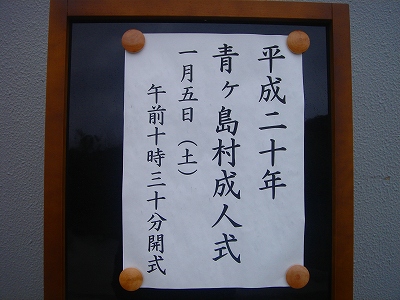 平成二十年
青ヶ島村成人式
一月五日（土）
午前十時三十分開式